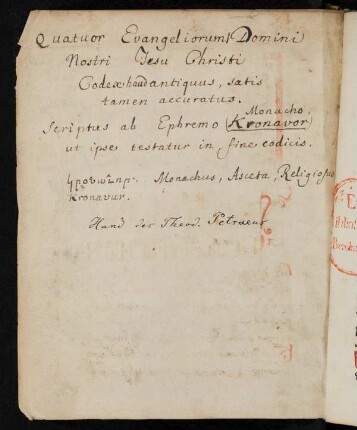 Quatuor Evangeliorum Domini
Nostri Jesu Christi
Codex haud antiquus, satis
tamen accuratus.
Monacho
Scriptus ab Ephremo (Kronavor)
ut ipse testatur in fine codicis.
կրօնաւոր. Monachus, Asceta, Religiosus
Kronavur.
Hand des Theod. Petraeus